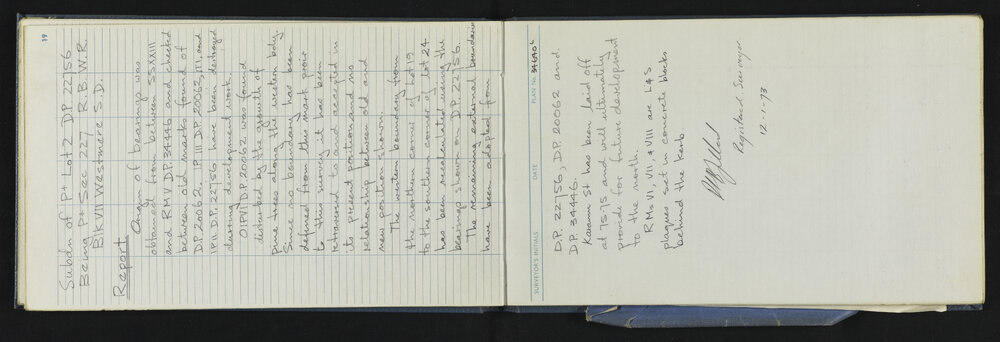 19
Subdn of Pt Lot 2 D.P. 22756
Being Pt Sec 227 R.B. W.R.
Blk VII Westmere S.D.
Report
Orign of bearings was
obtained from between SSXXIII
and R M V D.P. 34446 and checked
between old marks found of
D.P. 20062. I.P. III D.P. 20062, III, and
IP II D.P. 22756 have been destroyed
during development work.
O.I.P. VI D.P. 20062 was found
disturbed by the growth of
pine trees along the western bdy.
Since no boundary has been
defined from this mark prior
to this survey it has been
retraversed to and accepted in
its present position and no
relationship between old and
new position shown.
The western boundary from
the northern corner of Lot 19
to the southern corner of Lot 24
has been recalculated using the
bearings shown on D.P. 22756.
The remaining external boundaries
have been adopted from
SURVEYOR'S INITIALS
DATE
PLAN No. 34640
D.P. 22756, D.P. 20062 and
D.P. 34446.
St has been laid off
at 75·75 and will ultimately
provide for future development
to the north.
R Ms VI, VII, & VIII are L & S
plaques set in concrete blocks
behind the kerb
Registered Surveyor
12-1-73